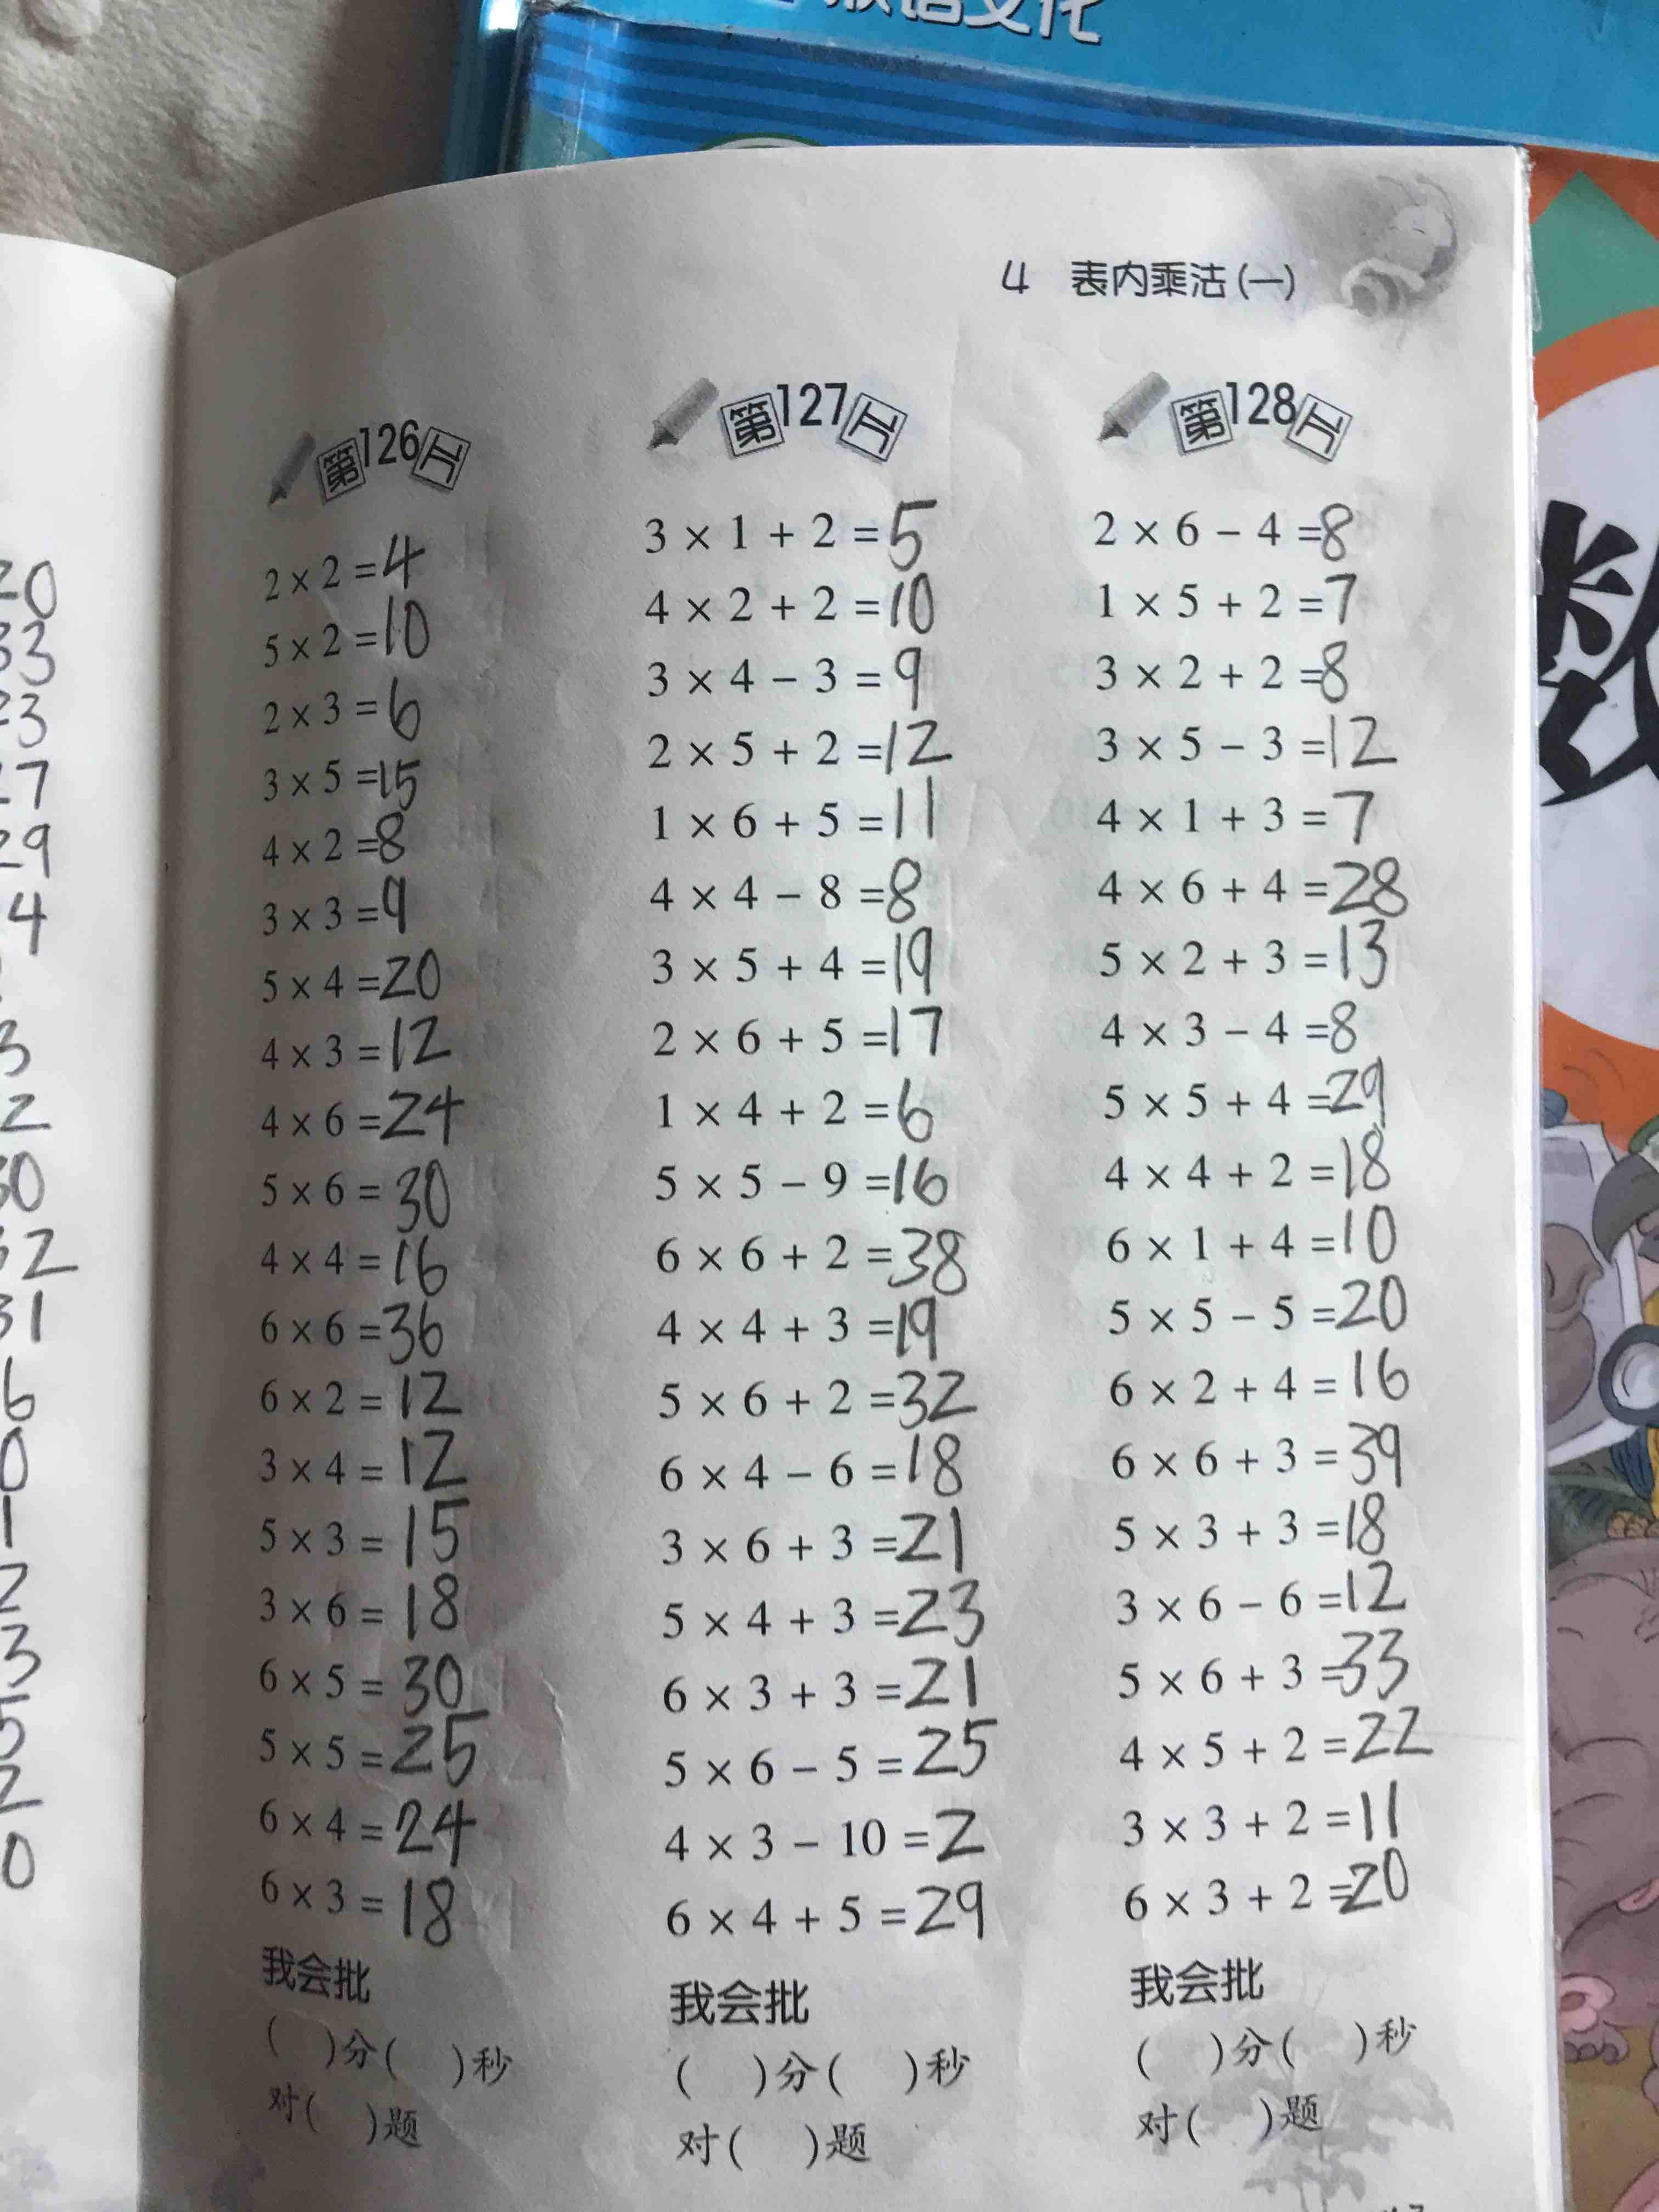 4 表内乘法(一)
第126天
2 × 2 = 4
5 × 2 = 10
2 × 3 = 6
3 × 5 = 15
4 × 2 = 8
3 × 3 = 9
5 × 4 = 20
4 × 3 = 12
4 × 6 = 24
5 × 6 = 30
4 × 4 = 16
6 × 6 = 36
6 × 2 = 12
3 × 4 = 12
5 × 3 = 15
3 × 6 = 18
6 × 5 = 30
5 × 5 = 25
6 × 4 = 24
6 × 3 = 18
我会批
( )分( )秒
对( )题
第127天
3 × 1 + 2 = 5
4 × 2 + 2 = 10
3 × 4 − 3 = 9
2 × 5 + 2 = 12
1 × 6 + 5 = 11
4 × 4 − 8 = 8
3 × 5 + 4 = 19
2 × 6 + 5 = 17
1 × 4 + 2 = 6
5 × 5 − 9 = 16
6 × 6 + 2 = 38
4 × 4 + 3 = 19
5 × 6 + 2 = 32
6 × 4 − 6 = 18
3 × 6 + 3 = 21
5 × 4 + 3 = 23
6 × 3 + 3 = 21
5 × 6 − 5 = 25
4 × 3 − 10 = 2
6 × 4 + 5 = 29
我会批
( )分( )秒
对( )题
第128天
2 × 6 − 4 = 8
1 × 5 + 2 = 7
3 × 2 + 2 = 8
3 × 5 − 3 = 12
4 × 1 + 3 = 7
4 × 6 + 4 = 28
5 × 2 + 3 = 13
4 × 3 − 4 = 8
5 × 5 + 4 = 29
4 × 4 + 2 = 18
6 × 1 + 4 = 10
5 × 5 − 5 = 20
6 × 2 + 4 = 16
6 × 6 + 3 = 39
5 × 3 + 3 = 18
3 × 6 − 6 = 12
5 × 6 + 3 = 33
4 × 5 + 2 = 22
3 × 3 + 2 = 11
6 × 3 + 2 = 20
我会批
( )分( )秒
对( )题
数